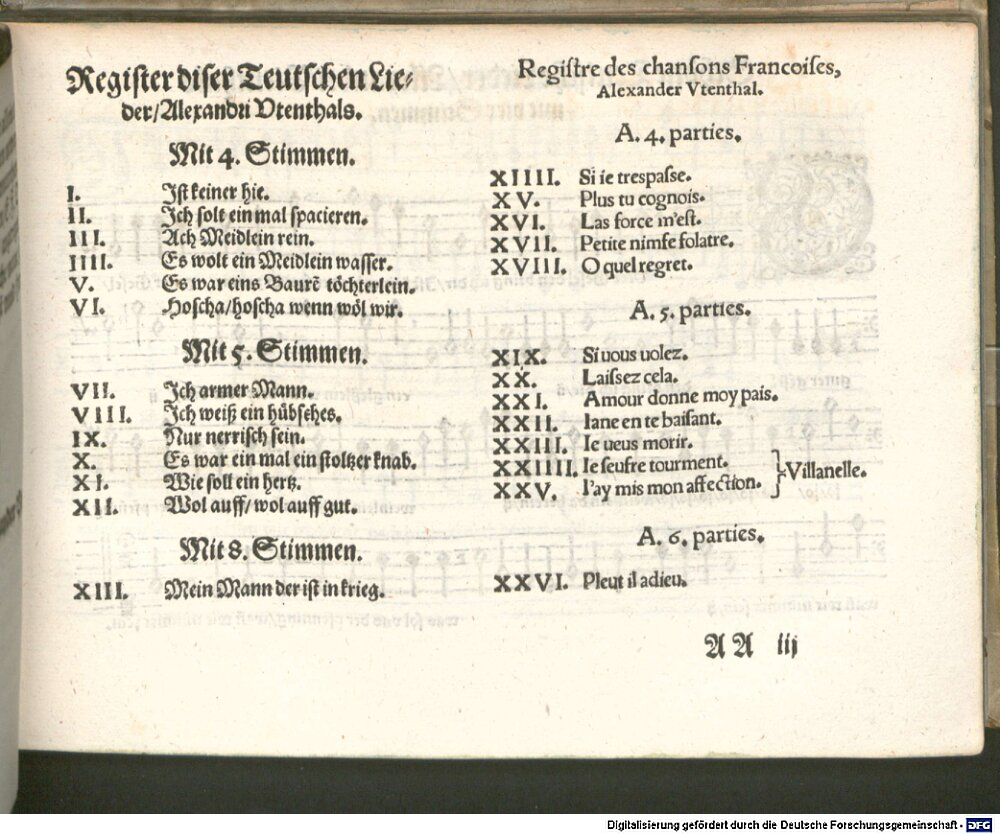 Regiſter diſer Teutſchen Lie-
der/Alexandri Vtenthals.
Mit 4. Stimmen.
I. Iſt keiner hie.
II. Ich ſolt ein mal ſpacieren.
III. Ach Meidlein rein.
IIII. Es wolt ein Meidlein waſſer.
V. Es war eins Baurẽ töchterlein.
VI. Hoſcha/hoſcha wenn wöl wir.
Mit 5. Stimmen.
VII. Ich armer Mann.
VIII. Ich weiß ein hübſches.
IX. Nur nerriſch ſein.
X. Es war ein mal ein ſtoltzer knab.
XI. Wie ſoll ein hertz.
XII. Wol auff/wol auff gut.
Mit 8. Stimmen.
XIII. Mein Mann der iſt in krieg.
Regiſtre des chanſons Francoiſes,
Alexander Vtenthal.
A. 4. parties.
XIIII. Si ie treſpaſſe.
XV. Plus tu cognois.
XVI. Las force m'eſt.
XVII. Petite nimfe folatre.
XVIII. O quel regret.
A. 5. parties.
XIX. Si uous uolez.
XX. Laiſſez cela.
XXI. Amour donne moy pais.
XXII. Iane en te baiſant.
XXIII. Ie ueus morir.
XXIIII. Ie ſeufre tourment.
XXV. I'ay mis mon affection.
Villanelle.
A. 6. parties.
XXVI. Pleut il adieu.
AA iij
Digitalisierung gefördert durch die Deutsche Forschungsgemeinschaft - DFG